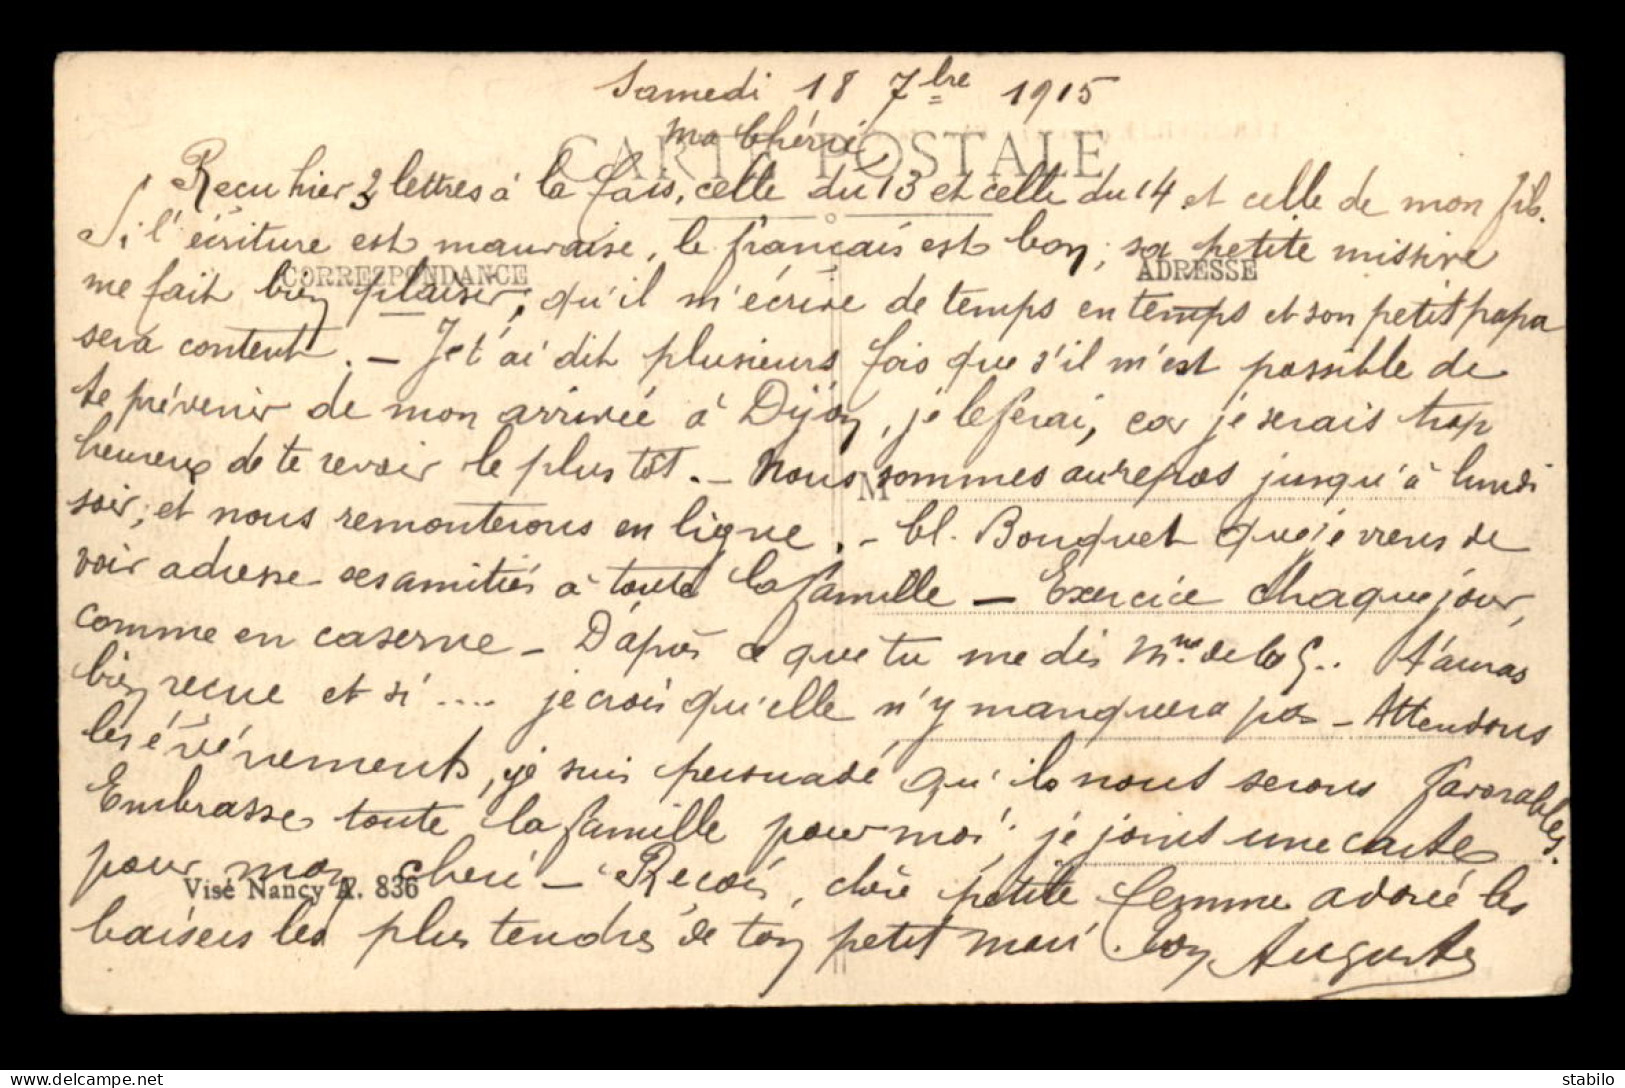 Samedi 18 7bre 1915
Ma Chérie
CARTE POSTALE
Reçu hier 3 lettres à la fois, celle du 13 et celle du 14 et celle de mon fils.
Si l'écriture est mauvaise, le français est bon, sa petite missive
CORRESPONDANCE
ADRESSE
me fait bien plaisir, qu'il m'écrive de temps en temps et son petit papa
sera content. – Je t'ai dit plusieurs fois que s'il m'est possible de
te prévenir de mon arrivée à Dijon, je le ferai, car je serais trop
heureux de te revoir le plus tôt. – Nous sommes au repos jusqu'à lundi
M
soir, et nous remonterons en ligne. – Cl. Bouquet que je viens de
voir adresse ses amitiés à toute la famille – Exercice chaque jour,
comme en caserne – D'après ce que tu me dis Mme de la G.. t'auras
bien reçue et si .... je crois qu'elle n'y manquera pas – Attendons
les événements, je suis persuadé qu'ils nous serons favorables.
Embrasse toute la famille pour moi, je joins une carte
pour mon cheri – Reçois, chère petite femme adorée les
Visé Nancy A. 836
baisers les plus tendres de ton petit mari. Ton Auguste